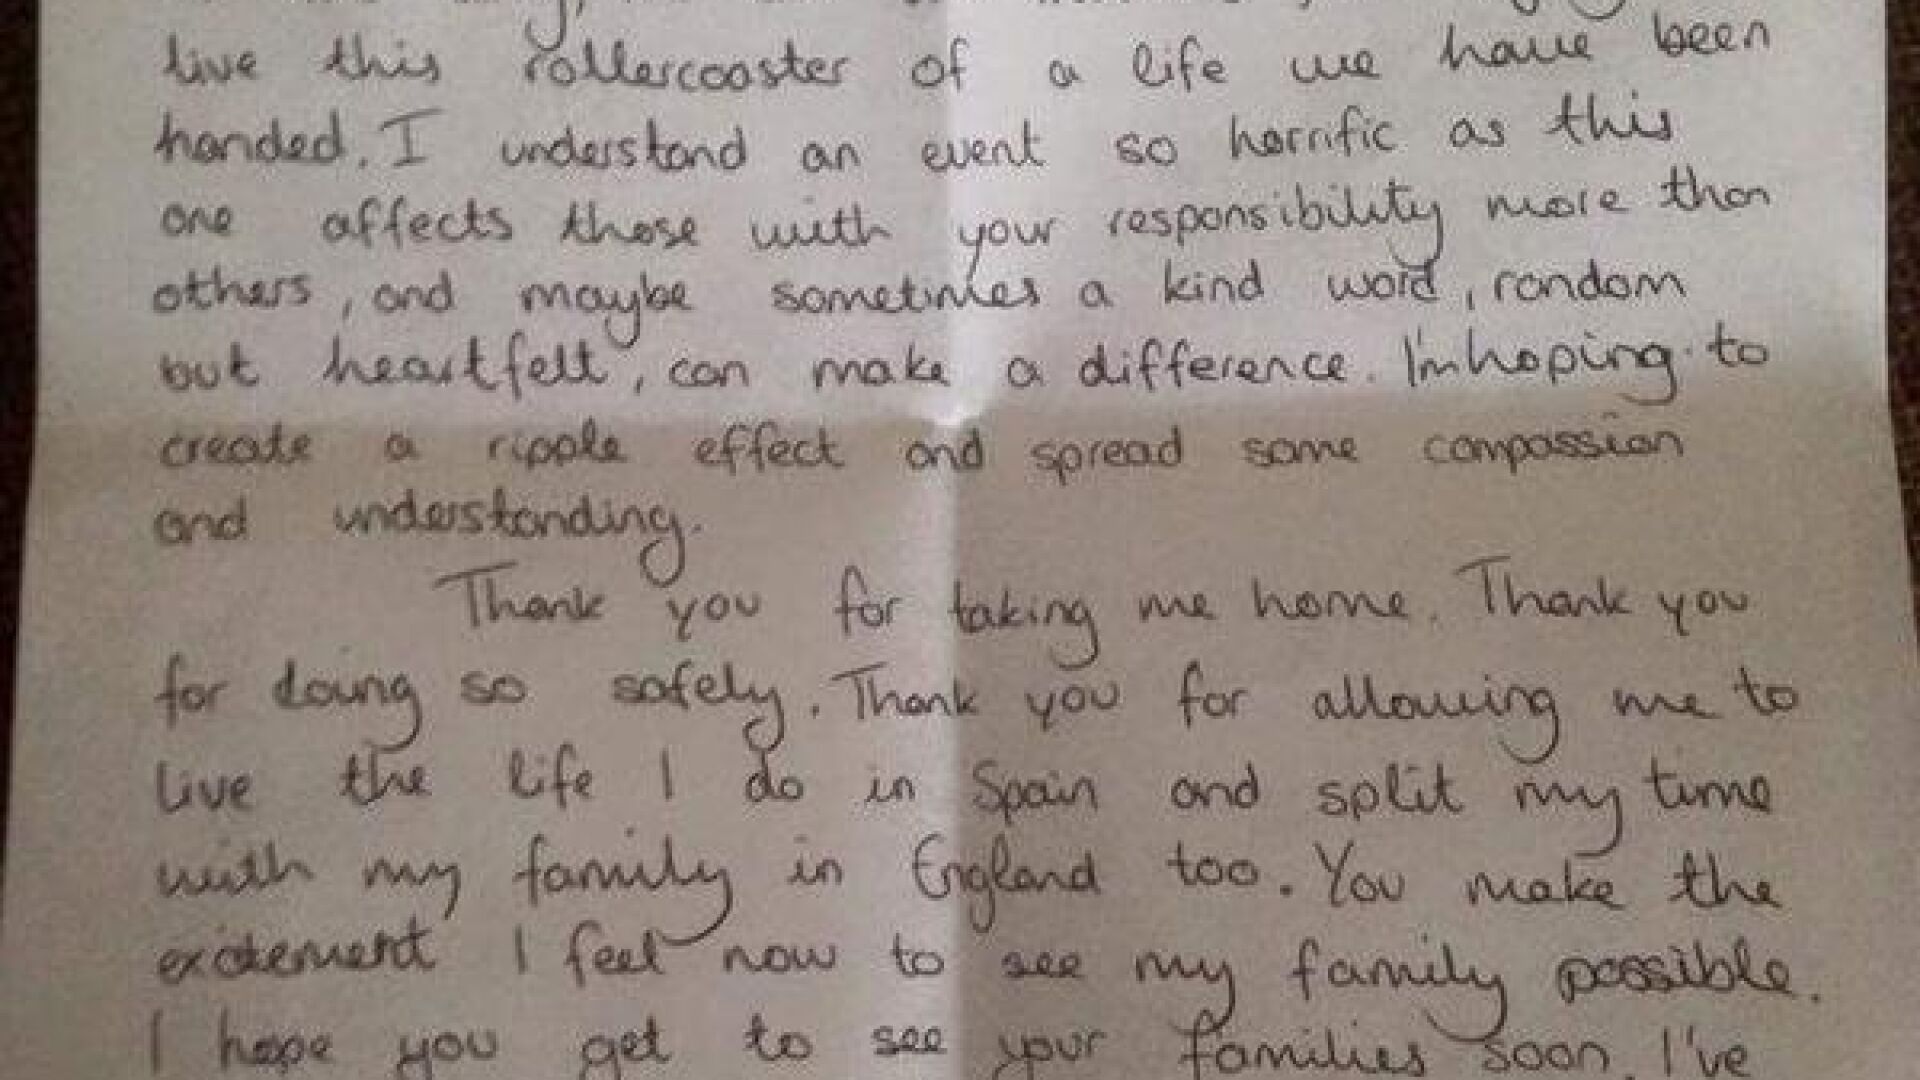 live this rollercoaster of a life we have been
handed. I understand an event so horrific as this
one affects those with your responsibility more than
others, and maybe sometimes a kind word, random
but heartfelt, can make a difference. I'm hoping to
create a ripple effect and spread some compassion
and understanding.
Thank you for taking me home. Thank you
for doing so safely. Thank you for allowing me to
live the life I do in Spain and split my time
with my family in England too. You make the
excitement I feel now to see my family possible.
I hope you get to see your families soon. I've